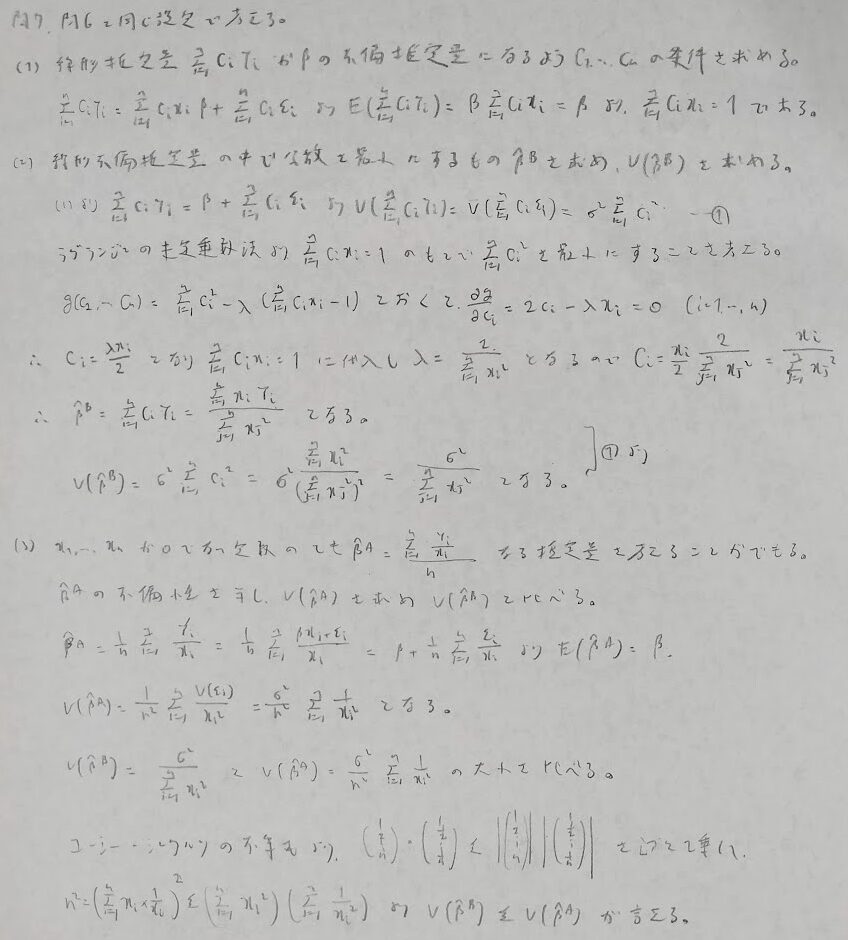 問7. 問6と同じ設定で考える。
(1) 線形推定量 Σ_{i=1}^n CiYi がβの不偏推定量になるよう C1…Cn の条件を求める。
Σ_{i=1}^n CiYi = Σ_{i=1}^n Cixi β + Σ_{i=1}^n Ciεi より E(Σ_{i=1}^n CiYi) = β Σ_{i=1}^n Cixi = β より, Σ_{i=1}^n Cixi = 1 である。
(2) 線形不偏推定量の中で分散を最小にするもの β̂^B を求め, V(β̂^B) を求める。
(1)より Σ_{i=1}^n CiYi = β + Σ_{i=1}^n Ciεi より V(Σ_{i=1}^n CiYi) = V(Σ_{i=1}^n Ciεi) = σ² Σ_{i=1}^n Ci² …①
ラグランジュの未定乗数法より Σ_{i=1}^n Cixi = 1 のもとで Σ_{i=1}^n Ci² を最小にすることを考える。
g(C1, … Cn) = Σ_{i=1}^n Ci² − λ(Σ_{i=1}^n Cixi − 1) とおくと, ∂g/∂Ci = 2Ci − λxi = 0 (i=1, …, n)
∴ Ci = λxi/2 となり Σ_{i=1}^n Cixi = 1 に代入し λ = 2/Σ_{i=1}^n xi² となるので Ci = xi/2 · 2/Σ_{j=1}^n xj² = xi/Σ_{j=1}^n xj²
∴ β̂^B = Σ_{i=1}^n CiYi = Σ_{i=1}^n xiYi / Σ_{j=1}^n xj² となる。
V(β̂^B) = σ² Σ_{i=1}^n Ci² = σ² Σ_{i=1}^n xi² / (Σ_{j=1}^n xj²)² = σ² / Σ_{j=1}^n xj² となる。 ①より
(3) x1, … xn が0でない定数のとき β̂^A = Σ_{i=1}^n (Yi/xi) / n なる推定量を考えることができる。
β̂^A の不偏性を示し, V(β̂^A) を求め V(β̂^B) と比べる。
β̂^A = 1/n Σ_{i=1}^n Yi/xi = 1/n Σ_{i=1}^n (βxi+εi)/xi = β + 1/n Σ_{i=1}^n εi/xi より E(β̂^A) = β.
V(β̂^A) = 1/n² Σ_{i=1}^n V(εi)/xi² = σ²/n² Σ_{i=1}^n 1/xi² となる。
V(β̂^B) = σ² / Σ_{i=1}^n xi² と V(β̂^A) = σ²/n² Σ_{i=1}^n 1/xi² の大小を比べる。
コーシー・シュワルツの不等式より,
n² = (Σ_{i=1}^n xi × 1/xi)² ≤ (Σ_{i=1}^n xi²)(Σ_{i=1}^n 1/xi²) より V(β̂^B) ≤ V(β̂^A) が言える。